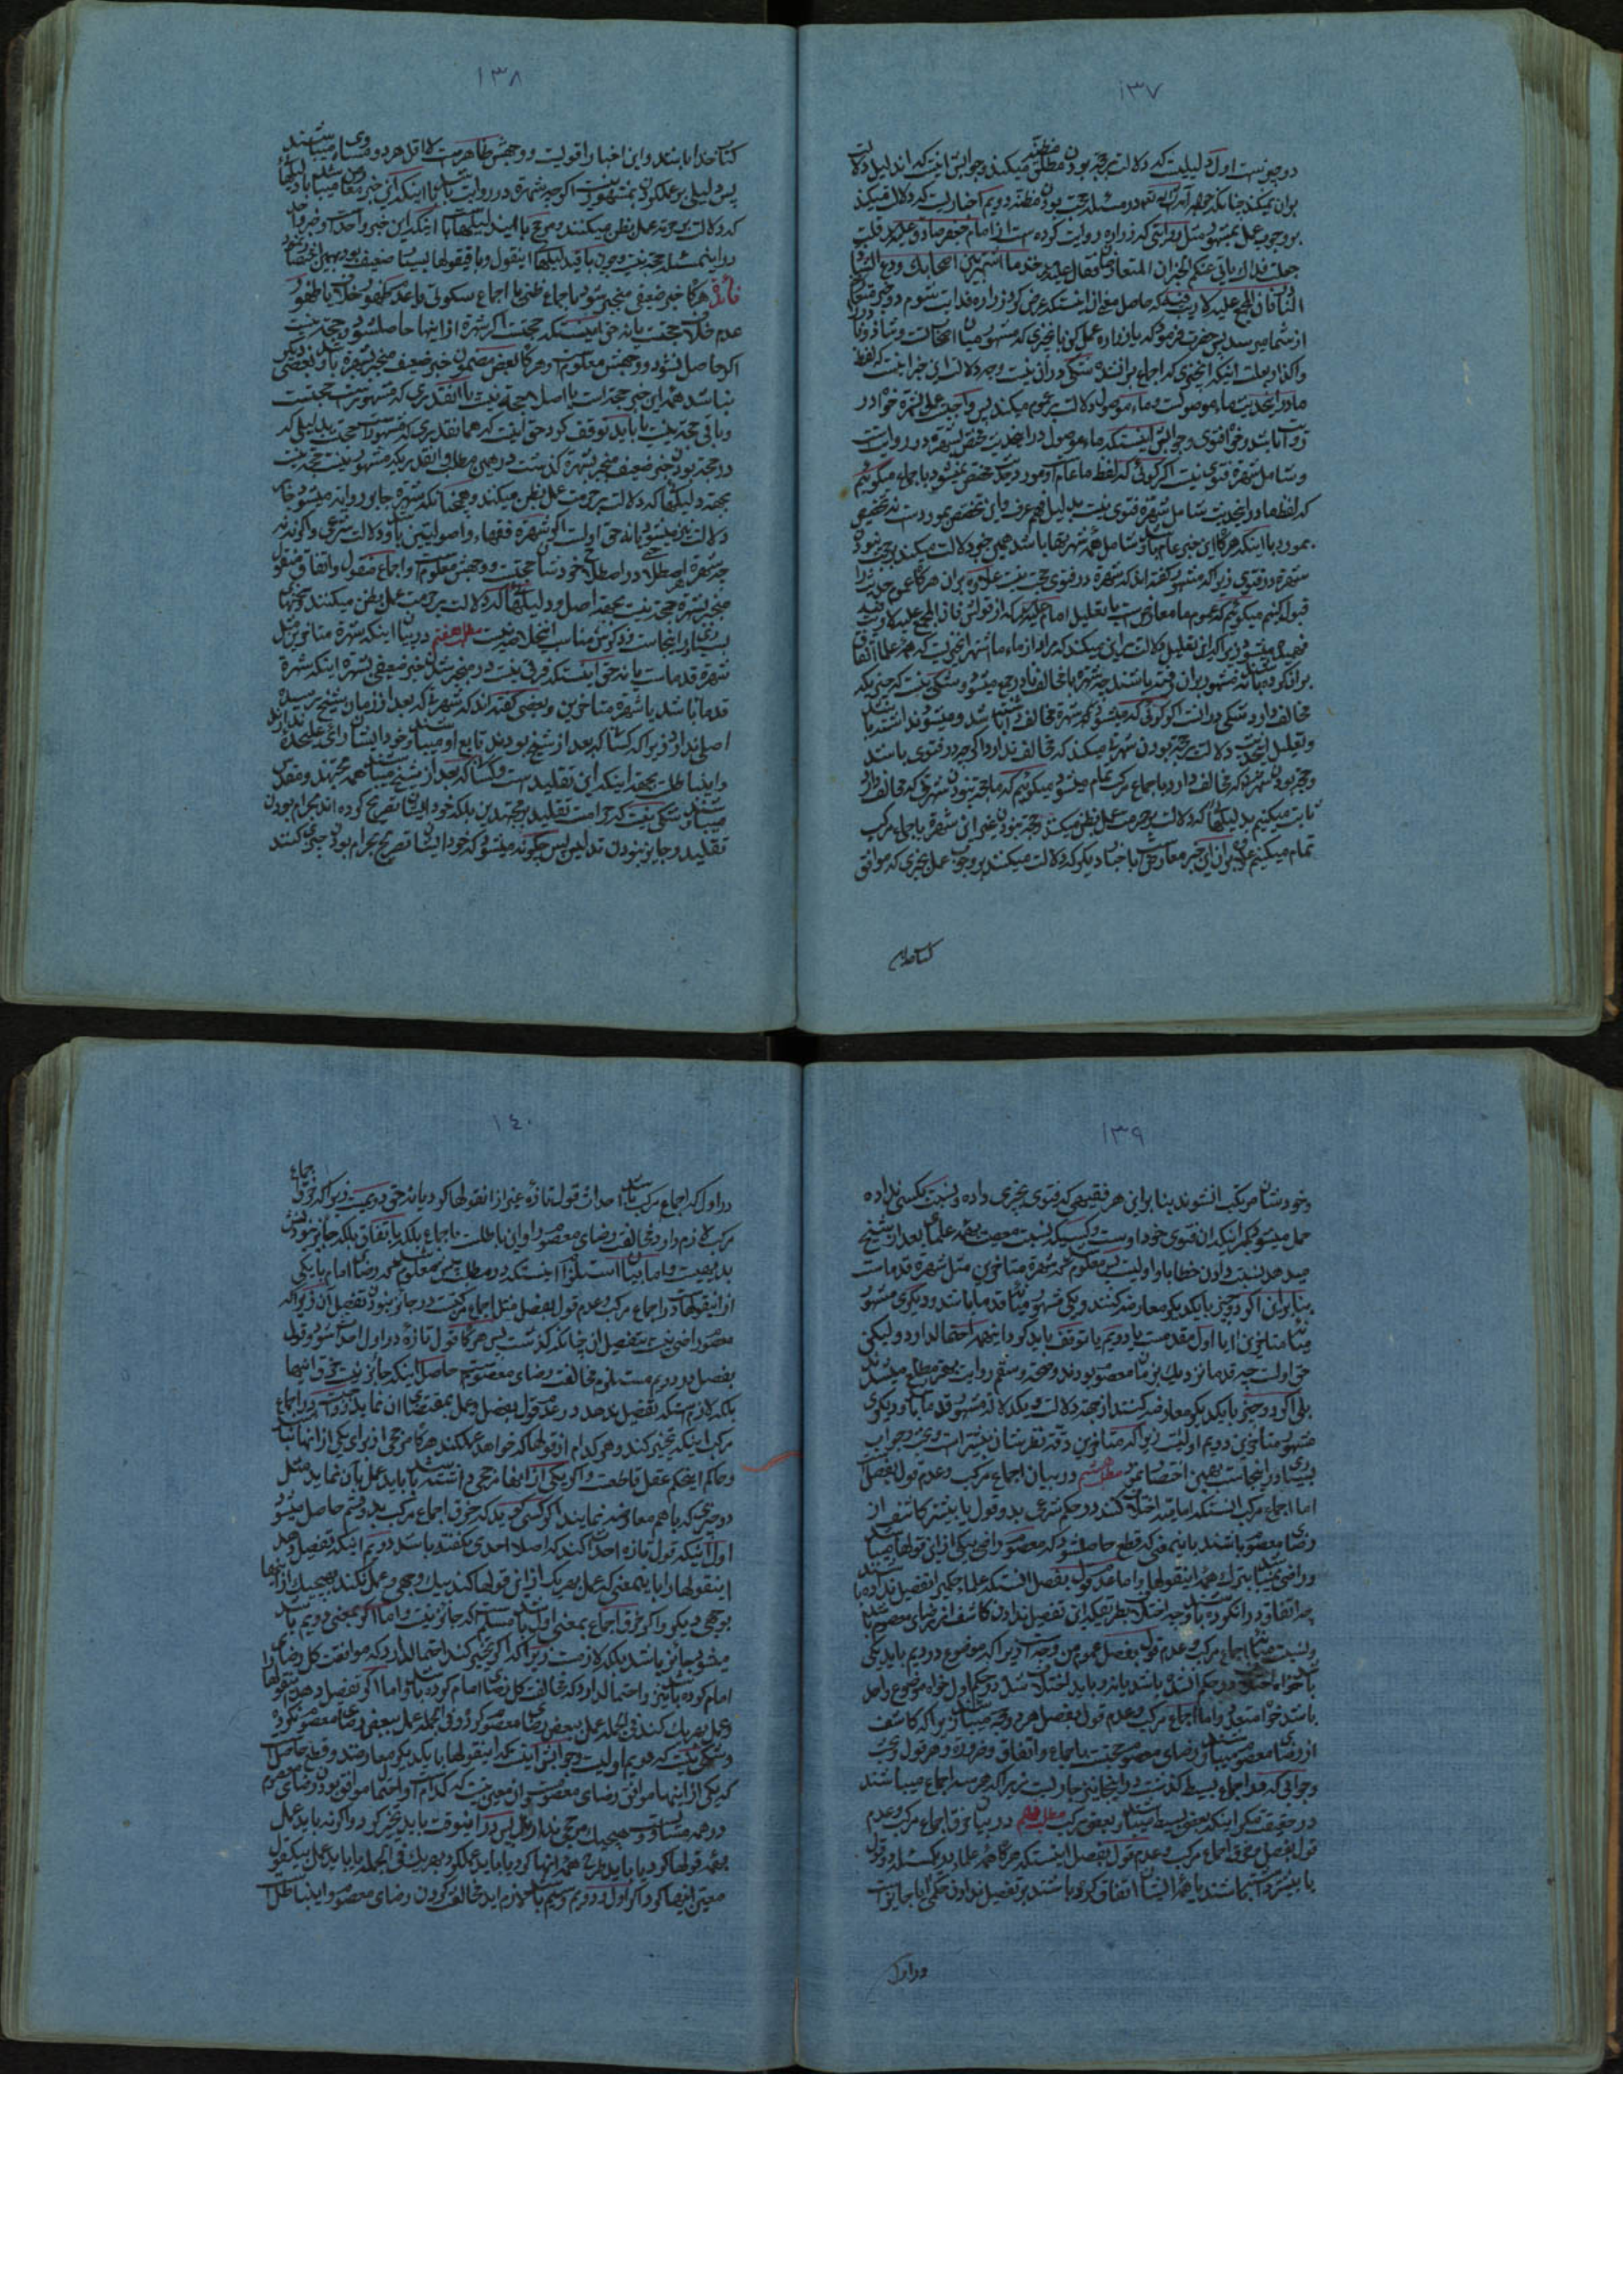 ١٣٧
دو چیز است اول دلیلیست که دلالت بر حجة بودن مطلق مظنه میکند و جوابش اینست که این دلیل دلالت
بران نمیکند چنانکه در مسئله حجت بودن مظنه دویم اخباریست که دلالت میکند
بر وجوب عمل بمشهور مثل روایتی که زراره روایت کرده است از امام جعفر صادق علیه السلام قلت
جعلت فداك یاتی عنکم الخبران المتعارضان فقال علیه السلام خذ بما اشتهر بین اصحابك ودع الشاذ
النادر فان المجمع علیه لا ریب فیه که حاصل معنی آن اینست که عرض کرد زراره فدایت شوم دو خبر متعارض
از شما میرسد پس حضرت فرمود که یا زراره عمل کن باخبری که مشهور میان اصحاب تست و شاذ و نادر را
واگذار بعلت اینکه آنچیزی که اجماع بر آنند شکی در آن نیست وجه دلالت این خبر اینست که لفظ
ما در اینحدیث ماء موصول است و ماء موصول دلالت بر عموم میکند پس واجبست عمل بشهرة خواه در
روایت باشد و خواه فتوی و جوابش اینست که ماء موصول در اینحدیث مختص بشهرة در روایت است
و شامل شهرة فتوی نیست اگر گوئی که لفظ ما عام است و مورد حدیث مختص نمیشود باجماع میگوئیم
که لفظ ما در اینحدیث شامل شهرة فتوی نیست بدلیل فهم عرف و این تخصیص بمورد است نه تخصیص
بمورد با اینکه هرگاه این خبر عام باشد و شامل همه شهرتها باشد همین خود دلالت میکند بر حجت نبودن
شهرة در فتوی زیرا که مشهور گفته اند که شهرة در فتوی حجت نیست علاوه بران هرگاه عموم حدیث را
قبول کنیم میگوئیم که عموم ما معارض است با تعلیل امام علیه السلام که از قولش فان المجمع علیه لا ریب فیه
فهمیده میشود زیرا که این تعلیل دلالت بر این میکند که مراد از ماء ما اشتهر آنچیزیست که همه علما اتفاق
بران کرده باشند نه مشهور بران رفته باشند چه شهرة با مخالف نادر جمع میشود و شکی نیست که چیزیکه
مخالف دارد شکی در آنست اگر گوئی که میشود که شهرة مخالف داشته باشد و میشود نداشته باشد
و تعلیل اینحدیث دلالت بر حجة بودن شهرتی میکند که مخالف ندارد اگر چه در فتوی باشد
و حجة بودن شهرتی که مخالف دارد باجماع مرکب تمام میشود میگوئیم که ما حجة نبودن شهرتی که مخالف دارد
ثابت میکنیم بدلیلها که دلالت بر حرمت عمل بظن میکند و حجة نبودن غیر این شهرة باجماع مرکب
تمام میکنیم علاوه بران این خبر معارض است با اخبار دیگر که دلالت میکنند بر وجوب عمل بخبری که موافق
کتاب خدا
١٣٨
کتاب خدا باشد و این اخبار اقویست و وجهش ظاهرست لا اقل هر دو مساوی میباشند
پس دلیلی بر عمل کردن بمشهور نیست اگر چه شهرة در روایت باشد با اینکه این خبر معارض میباشد با دلیلها
که دلالت بر حرمة عمل بظن میکنند و مرجح با ایندلیلهاست با اینکه این خبر واحد است و خبر واحد
در اینمسئله حجة نیست و چون باقی دلیلها اینقول و باقی قولها بسیار ضعیف بود بهمین اختصار شد
فائده هرگاه خبر ضعیفی منجبر شود باجماع ظنی یا اجماع سکوتی یا عدم ظهور خلاف یا ظهور
عدم خلاف حجتست یا نه حق اینستکه حجتست اگر شهرة از اینها حاصل شود و حجة نیست
اگر حاصل نشود و وجهش معلوم است و هرگاه بعض مضمون خبر ضعیف منجبر بشهرة باشد و بعضی دیگر
نباشد همه این خبر حجة است یا اصلا حجة نیست یا آنقدری که مشهور است حجتست
و باقی حجة نیست یا باید توقف کرد حق اینست که همانقدری که مشهور است حجتست بدلیلی که
در حجة بودن خبر ضعیف منجبر بشهرة گذشت در همین مطلب و آنقدریکه مشهور نیست حجة نیست
بجهة دلیلها که دلالت بر حرمت عمل بظن میکنند و همچنانکه شهرة جابر روایة میشود جابر
دلالت نیز میشود یا نه حق اولست اگر شهرة فقهاء و اصولیین باشد و دلالت شرعی و اگر نه نه
چه شهرة هر اصطلاحی در اصطلاح خودشان حجتست و وجهش معلوم است و اجماع منقول و اتفاق منقول
منجبر بشهرة حجة نیست بجهة اصل و دلیلها که دلالت بر حرمت عمل بظن میکنند و سخنها
بسیاری در اینجاست و ذکرش مناسب اینمحل نیست مطلب هفتم در بیان اینکه شهرة متاخرین مثل
شهرة قدماست یا نه حق اینستکه فرقی نیست در منجبر شدن خبر ضعیف بشهرة اینکه شهرة
قدما باشد یا شهرة متاخرین و بعضی گفته اند که شهرتی که بعد از زمان شیخ رسیده
اصلی ندارد زیرا که کسانیکه بعد از شیخ بودند تابع او میباشند و خود ایشان رای علیحده ندارند
و این باطلست بجهة اینکه این تقلید است و کسانیکه بعد از شیخ میباشند همه مجتهد و مقدس
میباشند و شکی نیست که حرامست تقلید بر مجتهدین بلکه خود ایشان تصریح کرده اند بحرام بودن
تقلید و جایز نبودن تدلیس پس چگونه میشود که خود ایشان تصریح بحرام بودن چیزی کنند
١٣٩
و خودشان مرتکب آن شوند بنابراین هر فقیهی که فتوی بچیزی داده و نسبت بکسی نداده
حمل میشود بر اینکه ان فتوی خود اوست و کسیکه نسبت معصیت بهمه علمای بعد از شیخ
میدهد نسبت دادن خطا باو اولیست پس معلوم شد که شهرة متاخرین مثل شهرة قدماست
بنابراین اگر دو چیز با یکدیگر معارضه کنند و یکی مشهور میان قدما باشد و دیگری مشهور
میان متاخرین آیا اول مقدمست یا دویم یا توقف باید کرد در اینجا احتمال دارد ولیکن
حق اولست چه قدما نزدیك بزمان معصوم بودند و صحة و سقم روایت بهتر مطلع میشدند
بلی اگر دو چیز با یکدیگر معارضه کنند از جهة دلالت و یکدلالة مشهور قدما باشد و دیگری
مشهور متاخرین دویم اولیست زیرا که متاخرین دقة نظرشان بیشتر است و بحث و جواب
بسیار در اینجاست بهمین اختصار نمودیم مطلب هشتم در بیان اجماع مرکب و عدم قول بفصل
اما اجماع مرکب آنستکه امامیه اختلاف کنند در حکم شرعی بدو قول یا بیشتر کاشف از
رضای معصوم باشند باینمعنی که قطع حاصل شود که معصوم راضی بیکی از این قولها میباشد
و راضی نمیباشد بترك همه اینقولها و اما عدم قول بفصل آنستکه علماء حکم بر تفصیل نداده باشند
چه اتفاق در آن کرده باشند و چه اختلاف بطریقیکه این تفصیل ندادن کاشف از رضای معصوم باشد
و نسبت میان اجماع مرکب و عدم قول بفصل عموم من وجه است زیرا که موضوع در دویم باید یکی
باشد خواه موضوع واحد
باشد خواه متعدد و اما اجماع مرکب و عدم قول بفصل هر دو حجة میباشند زیرا که کاشف
از رضای معصوم میباشند و رضای معصوم حجتست باجماع و اتفاق و ضرورة و هر قول و بحث
و جوابی که در اجماع بسیط گذشت در اینجا نیز جاریست زیرا که هر سه اجماع میباشند
در حقیقت مگر اینکه بعضی بسیط میباشند و بعضی مرکب مطلب نهم در بیان خرق اجماع مرکب و عدم
قول بفصل خرق اجماع مرکب و عدم قول بفصل اینستکه هرگاه همه علماء در یکمسئله دو قول
یا بیشتر داشته باشند یا همه ایشان اتفاق کرده باشند بر تفصیل ندادن حکمی آیا جایز است
در اول
١٤٠
در اول که اجماع مرکب باشد احداث قول تازه غیر از انقولها کرد یا نه حق دویمست زیرا که خرق اجماع
مرکب لازم دارد مخالفت رضای معصوم را و این باطلست باجماع بلکه باتفاق بلکه جایز نبودنش
بدیهیست و اما بیان استلزام اینستکه در مطلب پیش معلوم شد که رضای امام با یکی
از اینقولهاست در اجماع مرکب و عدم قول بفصل مثل اجماع مرکبست در جایز نبودن تفصیل آن زیرا که
معصوم راضی نیست بتفصیل آن چنانکه گذشت پس هرگاه قول تازه در اول احداث شود و قول
بفصل در دویم مستلزم مخالفت رضای معصومست حاصل اینکه جائز نیست خرق اینها
بلکه لازمستکه تفصیل ندهد در عدم قول بفصل و عمل بمقتضای ان نماید و واجبست در اجماع
مرکب اینکه تخییر کند و هر کدام از قولها که خواهد عمل کند هرگاه مرجحی از برای یکی از انها نباشد
و حاکم اینحکم عقل قاطعست و اگر یکی از انها مرجحی داشته باشد باید عمل بآن نماید مثل
دو خبری که با هم معارضه نمایند اگر کسی گوید که خرق اجماع مرکب بدو قسم حاصل میشود
اول آنکه قول تازه احداث کند که اصلا احدی نگفته باشد دویم اینکه تفصیل دهد
اینقولها را باینمعنی که عمل بهر یك از این قولها کند بیك وجهی و عمل نکند بهیچیك از آنها
بوجهی دیگر و اگر خرق اجماع بمعنی اول باشد مسلمست که جائز نیست و اما اگر بمعنی دویم باشد
میشود جائز باشد بلکه لازمست زیرا که اگر تخییر کند احتمال دارد که موافقت کل رضای
امام کرده باشد و احتمال دارد که مخالفت کل رضای امام کرده باشد و اما اگر تفصیل دهد قولها را
و عمل بهر یك کند فی الجمله عمل ببعض رضای معصوم کرده و فی الجمله عمل ببعض رضای معصوم نکرده
و شکی نیست که دویم اولیست و جوابش اینست که اینقولها با یکدیگر معارضند و قطع حاصلست
که یکی از اینها موافق رضای معصومست و ان معین نیست که کدام است و احتمال موافق بودن رضای معصوم
در همه مساویست و هیچیك مرجحی ندارند پس در اینوقت باید تخییر کرد و اگر نه باید عمل
بهمه قولها کرد یا باید طرح همه آنها کرد یا باید عمل کرد بهر یك فی الجمله یا باید عمل بیکقول
معین اینها کرد اگر اول و دویم و سیم باشد لازم آید مخالفت کردن رضای معصوم و این باطلست